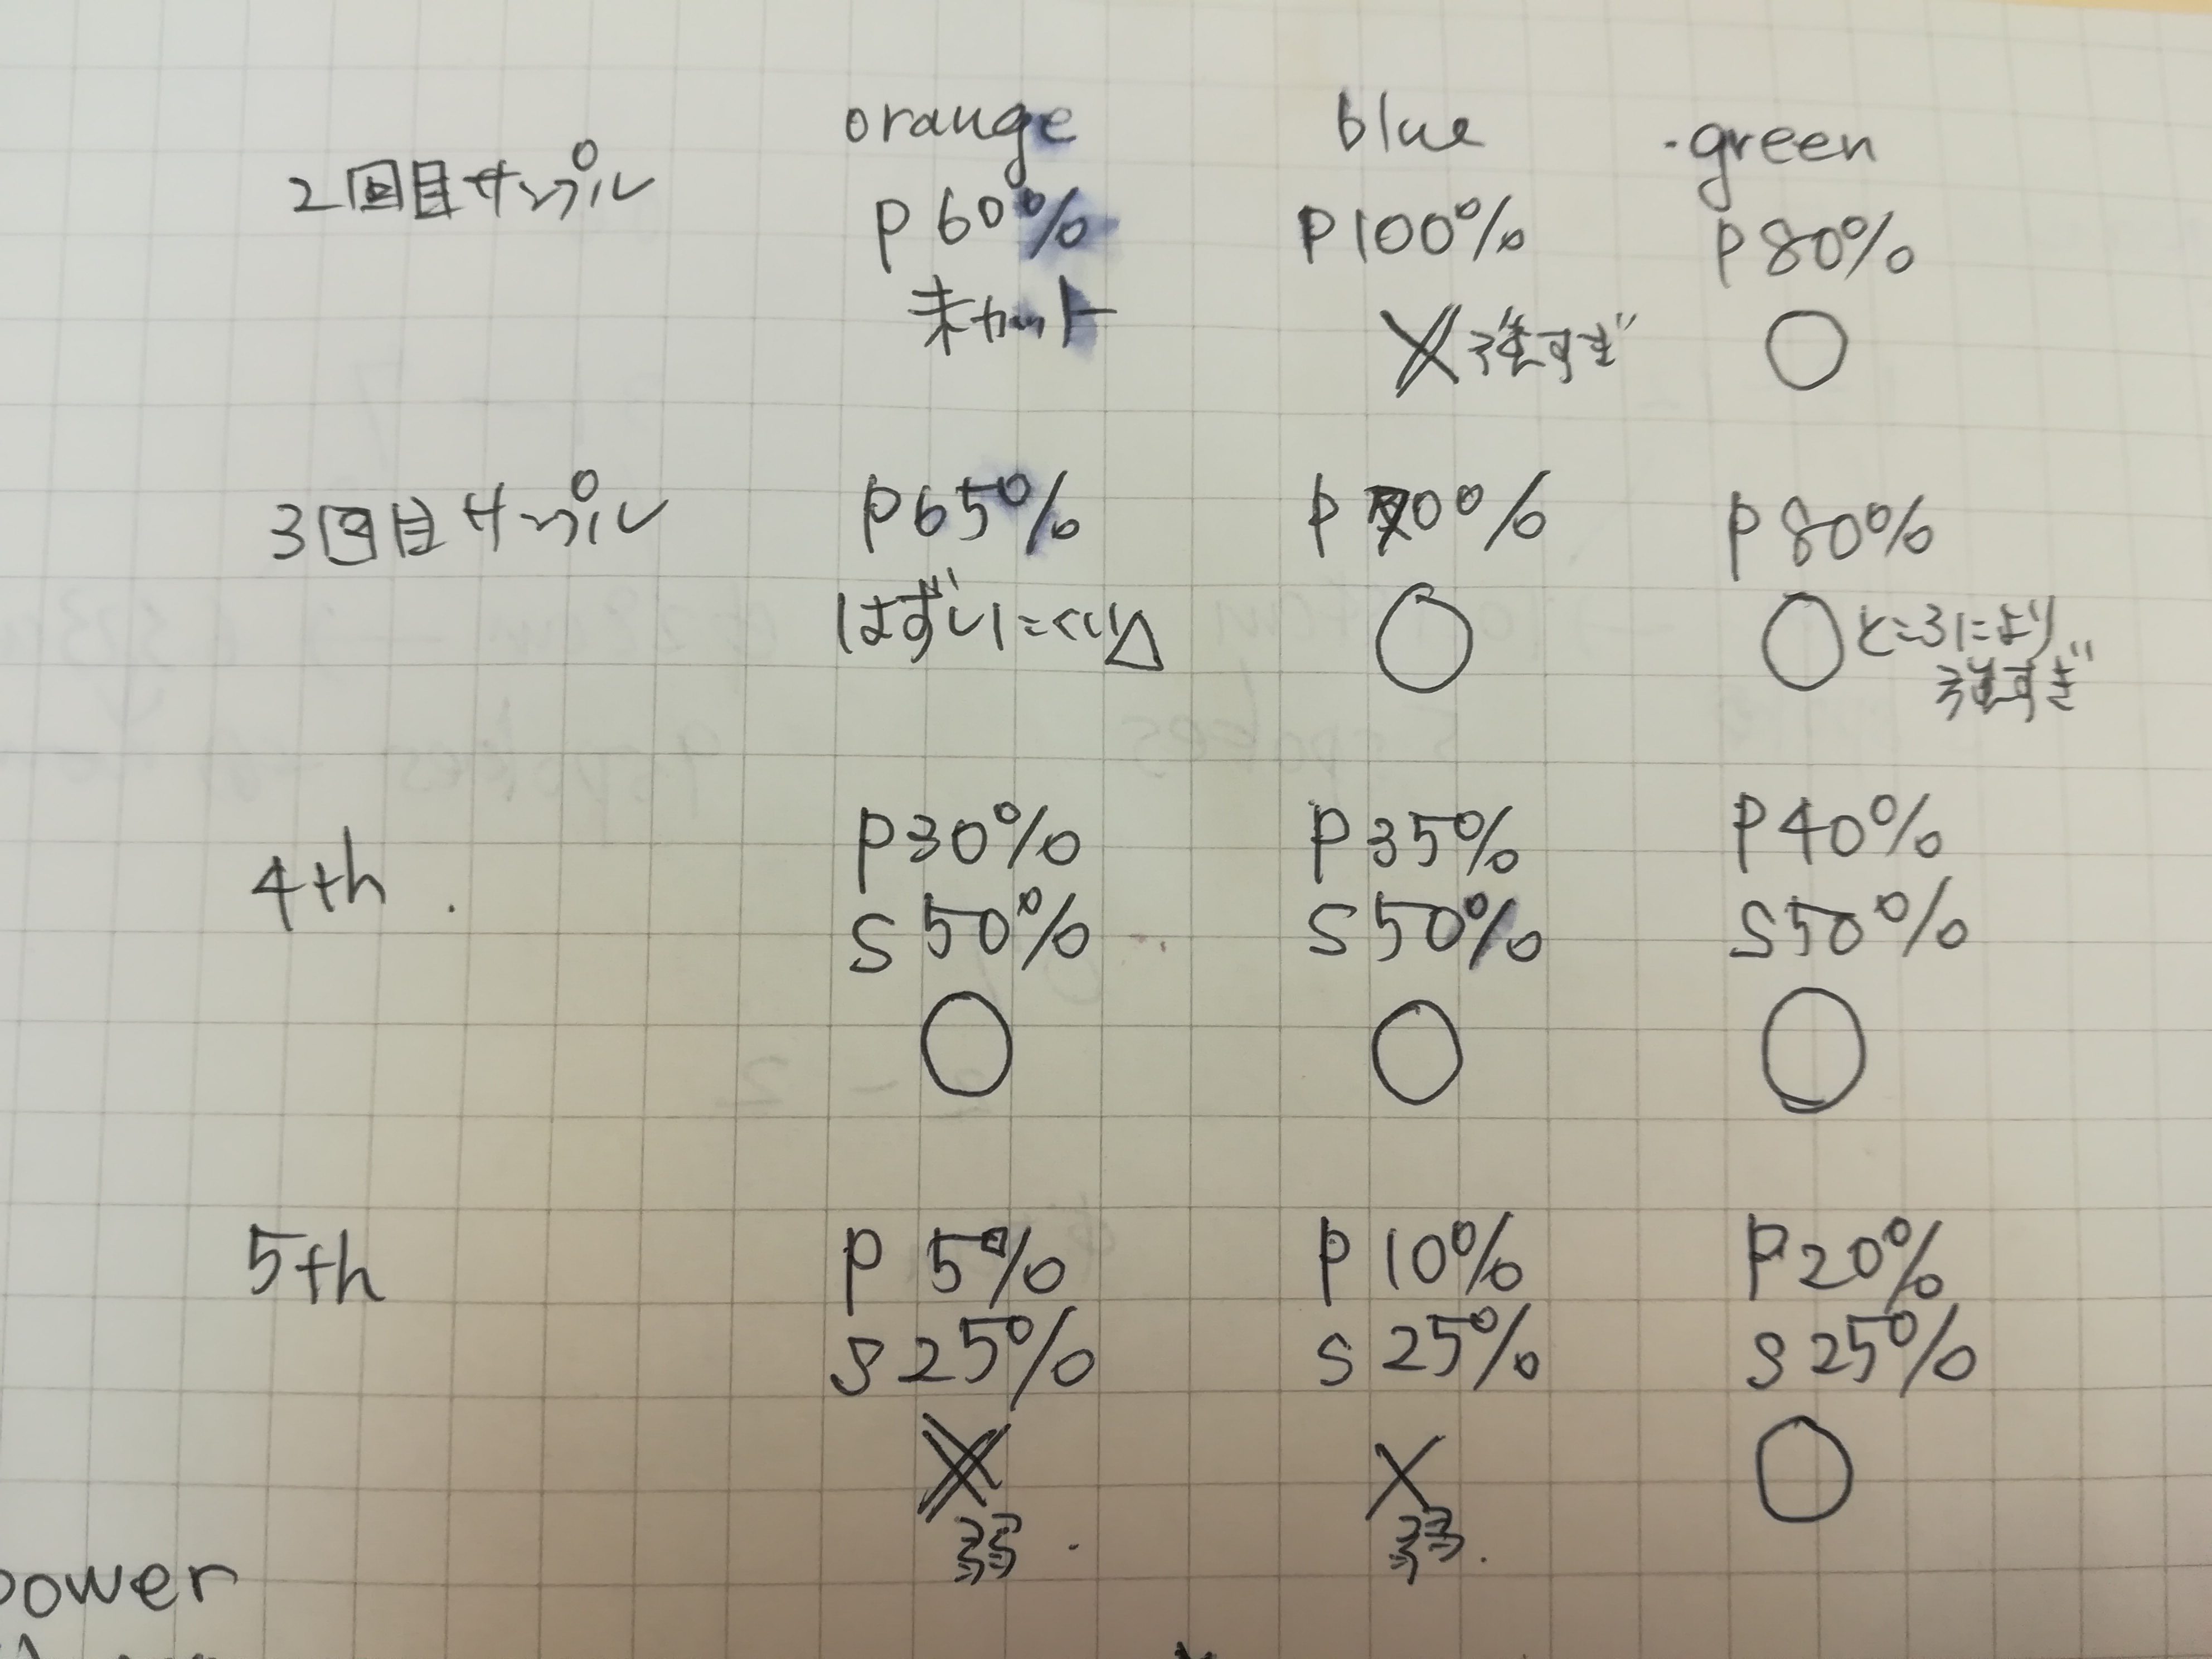 orange blue green
2回目サンプル P60% P100% P80%
未カット ×強すぎ ○
3回目サンプル P65% P70% P80%
はずしにくい△ ○ ○ところにより
強すぎ
4th. P30% P35% P40%
S50% S50% S50%
○ ○ ○
5th P 5% P 10% P20%
S 25% S 25% S 25%
× × ○
弱. 弱.
power